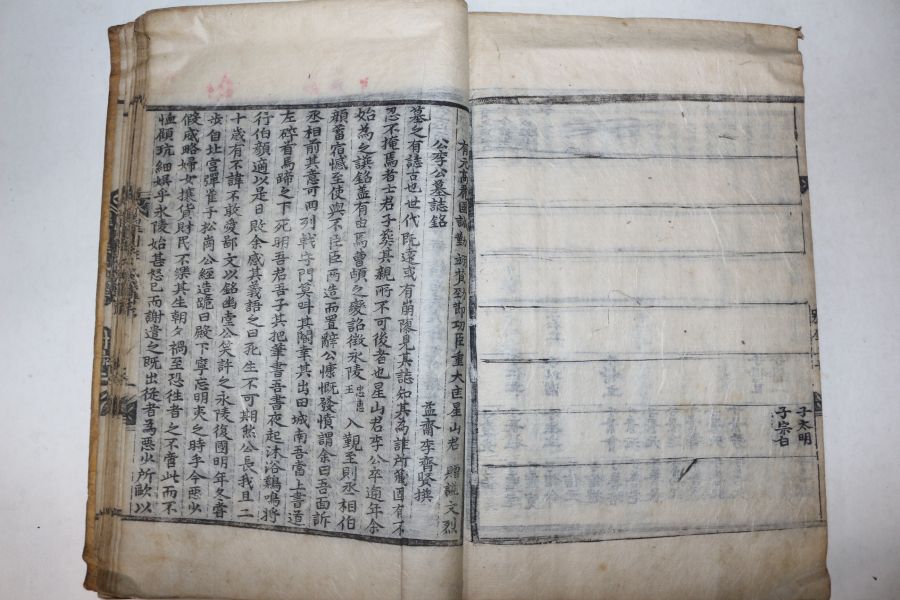 子太明
子宗白
有元高麗國誠勤翊贊勁節功臣重大匡星山君 贈諡文烈
公李公墓誌銘
益齋李齊賢撰
墓之有誌古也世代既遠或有崩隳見其誌知其為誰所葬固有不
忍不掩焉者士君子葬其親所不可後者也星山君李公卒逾年余
始為之譔銘盖有由焉曹頔之變詔徵永陵忠惠王入覲至則丞相伯
顔蓄宿憾至使與不臣臣兩造而置辭公慷慨發憤謂余曰吾面訴
丞相前其意可回列戟守門莫叫其閽幸其出田城南吾當上書道
左碎首馬蹄之下死明吾君吾子其把筆書吾書夜起沐浴鷄鳴將
行伯顔適以是日敗余感其義語之曰死生不可期然公長我且二
十歲有不諱不敢愛鄙文以銘幽堂公笑許之永陵復國明年冬嘗
步自北宮彈雀于松崗公經造跪曰殿下寧忘明夷之時乎今惡少
假威略婦女攘貨財民不樂其生朝夕禍至恐往者之不啻此而不
恤顧玩細娛乎永陵始甚怒已而謝遣之既出從者為惡少所歐以